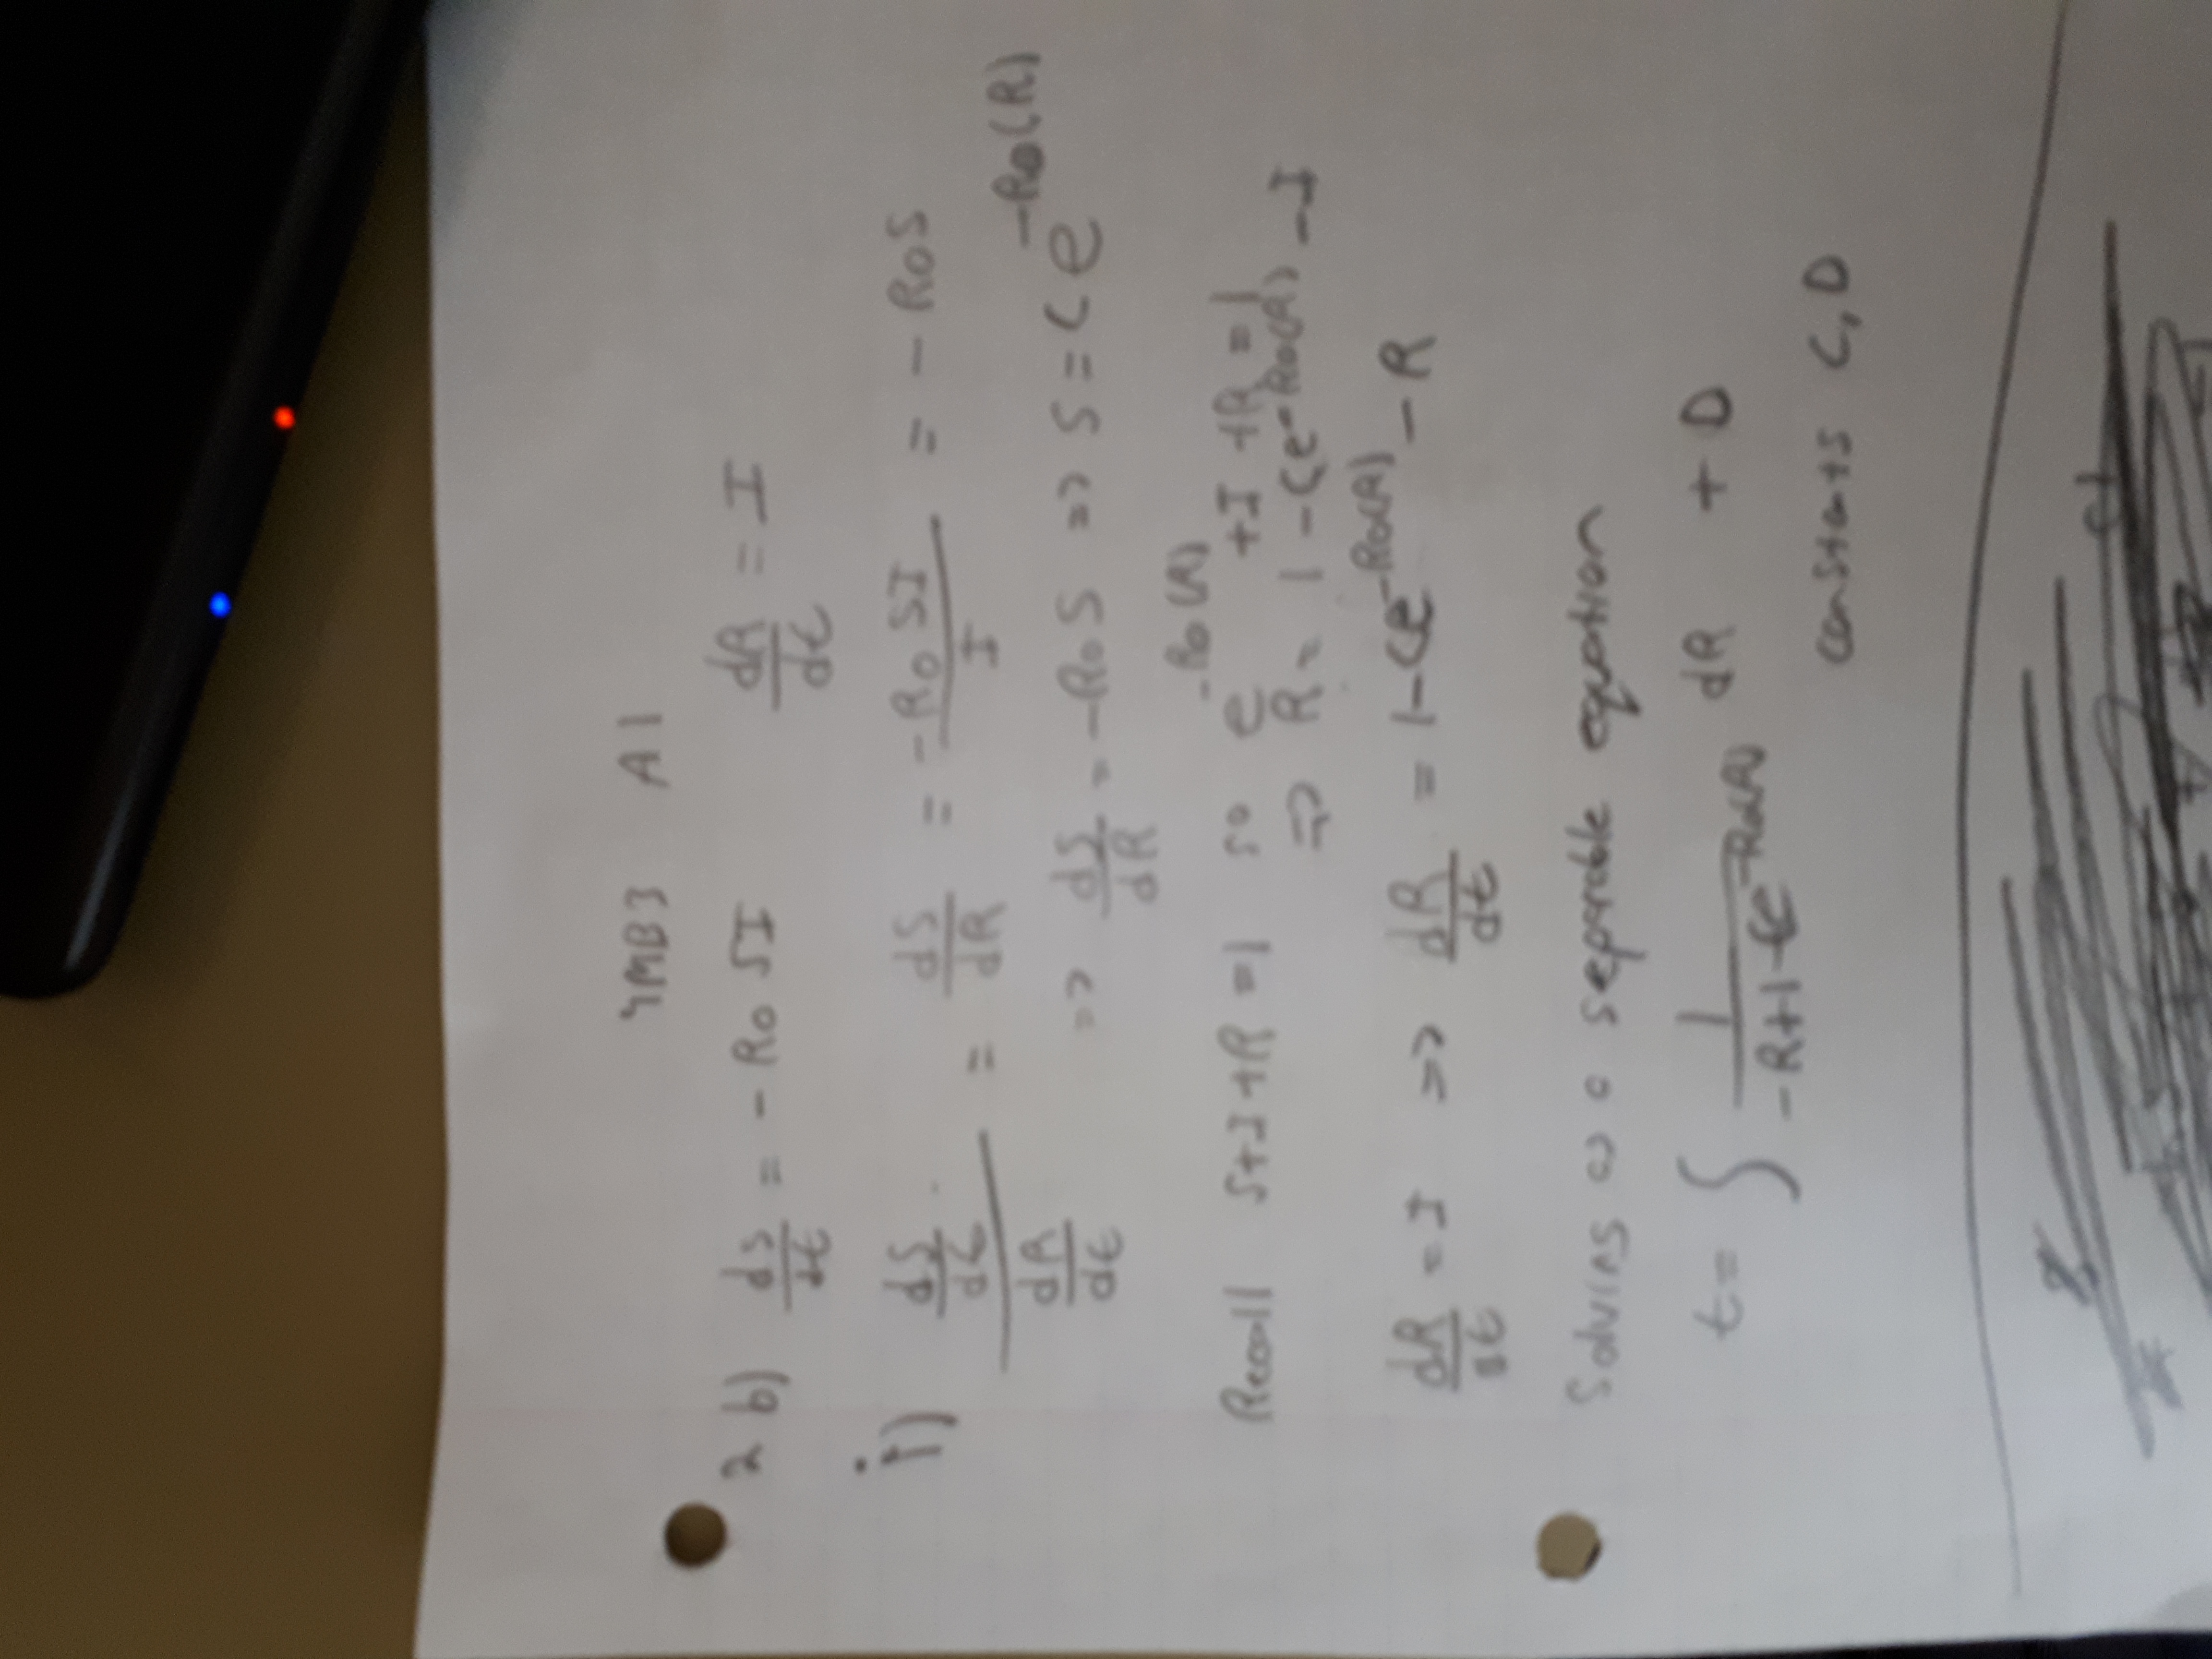 4MB3 A1
2 b) dS/dt = - R0 SI dR/dt = I
i) (dS/dt)/(dR/dt) = dS/dR = -R0 SI / I = - R0S
=> dS/dR = -R0 S => S = C e^-R0(R)
Recall S+I+R = 1 so e^-R0(R) + I + R = 1
=> R = 1 - Ce^-R0(R) - I
dR/dt = I => dR/dt = 1-Ce^-R0(R) - R
Solving as a separable equation
t = ∫ 1/(-R+1-Ce^-R0(R)) dR + D
constants C, D